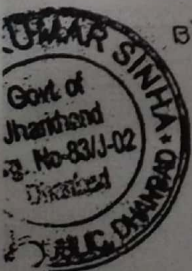 UMAR SINHA ★
B
Govt. of
Jharkhand
g. No-83/J-02
Dhanbad
BLIC, DHANBAD